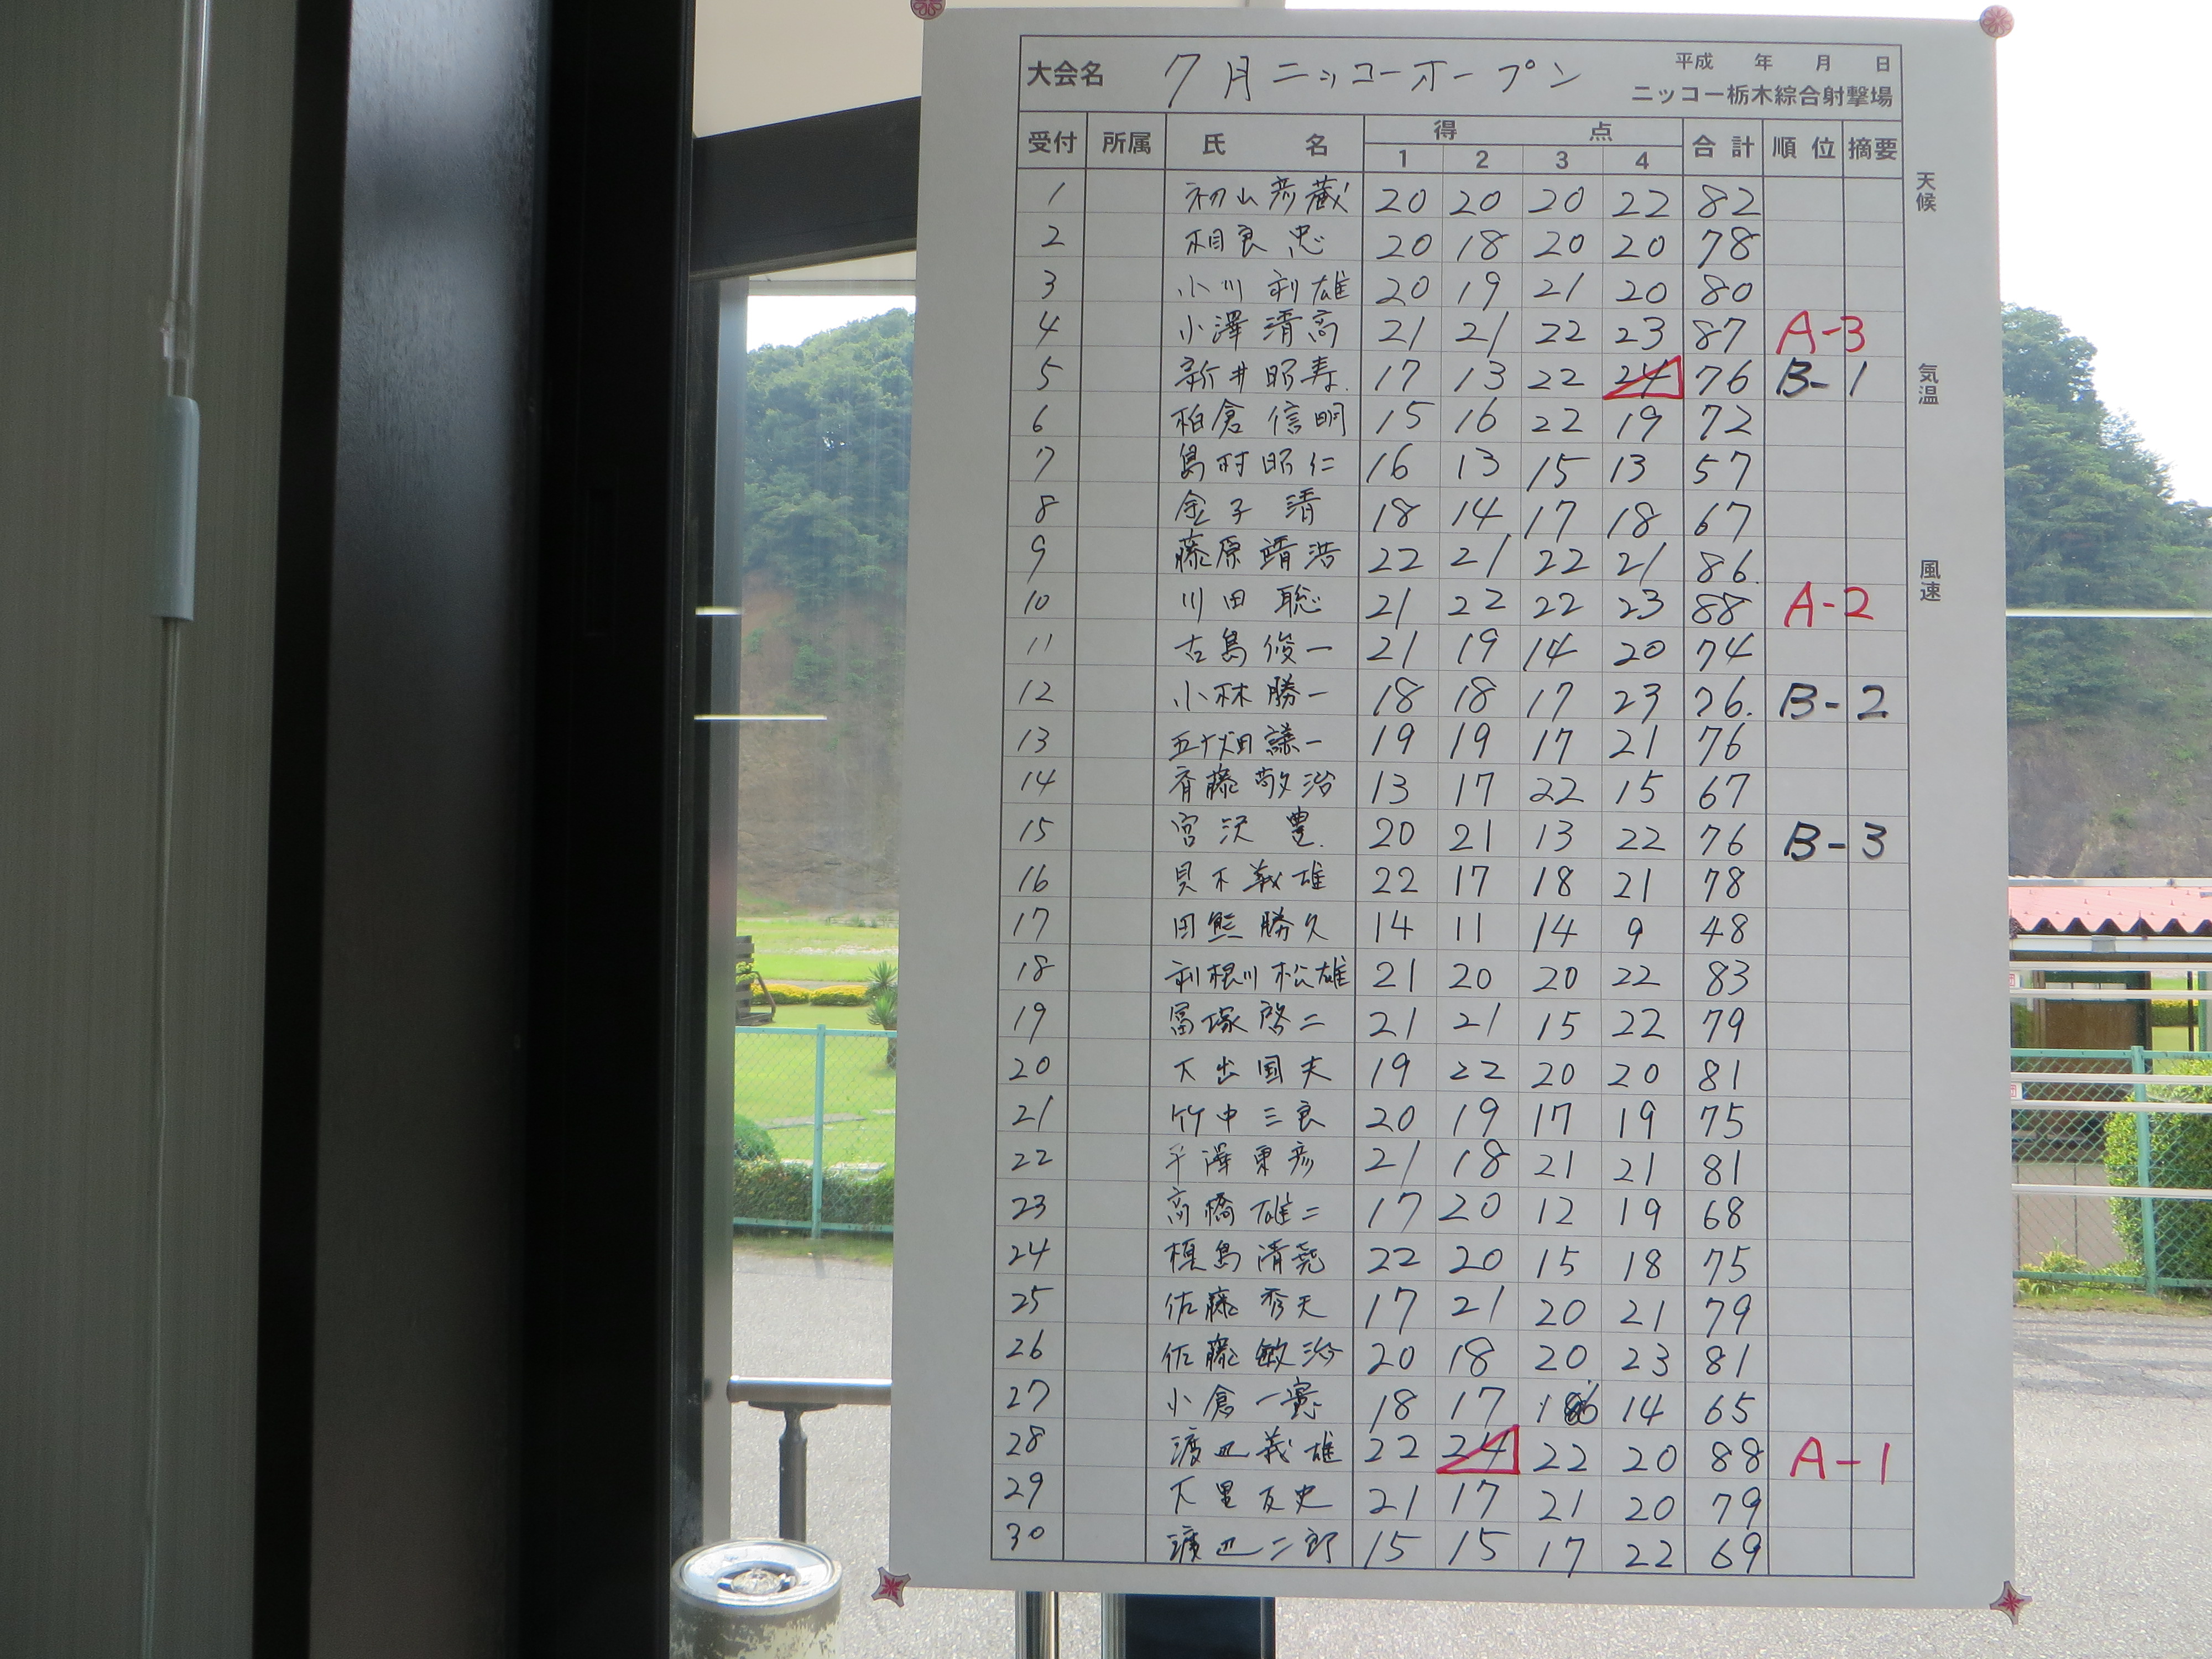 大会名 7月ニッコーオープン 平成 年 月 日
ニッコー栃木綜合射撃場
受付 所属 氏 名 得 点 合計 順位 摘要
1 2 3 4
1 初山彦蔵 20 20 20 22 82
2 相良忠 20 18 20 20 78
3 小川利雄 20 19 21 20 80
4 小澤清高 21 21 22 23 87 A-3
5 新井昭寿 17 13 22 24 76 B-1
6 柏倉信明 15 16 22 19 72
7 島村昭仁 16 13 15 13 57
8 金子清 18 14 17 18 67
9 藤原靖浩 22 21 22 21 86.
10 川田聡 21 22 22 23 88 A-2
11 古島俊一 21 19 14 20 74
12 小林勝一 18 18 17 23 76. B-2
13 五十畑謙一 19 19 17 21 76
14 斉藤敬治 13 17 22 15 67
15 宮沢豊 20 21 13 22 76 B-3
16 貝木義雄 22 17 18 21 78
17 田熊勝久 14 11 14 9 48
18 利根川松雄 21 20 20 22 83
19 冨塚啓二 21 21 15 22 79
20 大出国夫 19 22 20 20 81
21 竹中三良 20 19 17 19 75
22 平澤東彦 21 18 21 21 81
23 高橋雄二 17 20 12 19 68
24 島清 22 20 15 18 75
25 佐藤秀夫 17 21 20 21 79
26 佐藤敏治 20 18 20 23 81
27 小倉一 18 17 16 14 65
28 渡辺義雄 22 24 22 20 88 A-1
29 大里友史 21 17 21 20 79
30 渡辺二郎 15 15 17 22 69
天候
気温
風速